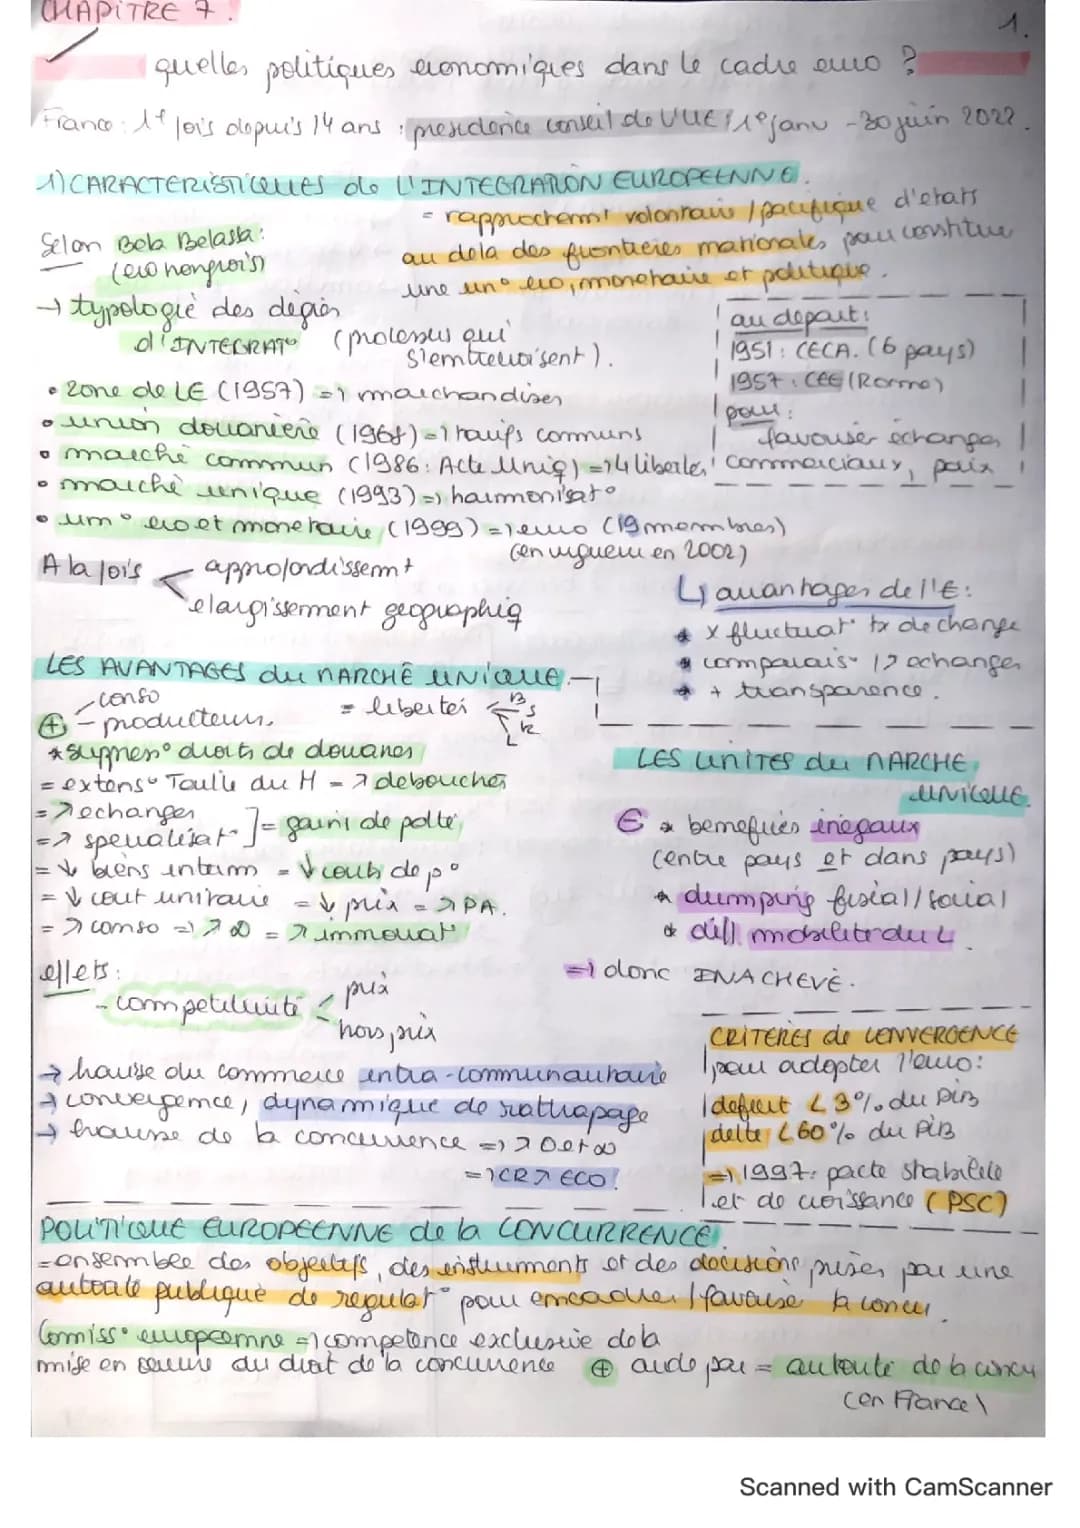 CHAPITRE 7.
1.
quelles politiques economiques dans le cadre euro ?
France : 1e fois depuis 14 ans : presidence conseil de l'UE : 1e janv - 30 juin 2022.
1) CARACTERISTIQUES de L'INTEGRATION EUROPEENNE.
= rapprochemt volontaire / pacifique d'etats
au dela des frontieres nationales, pour constituer
une un° eco, monetaire et politique.
Selon Bela Belassa :
(eco hongrois)
→ typologie des degrés
d'INTEGRAT° (processus qui
s'entrecroisent).
• zone de LE (1957) => marchandises
• union douanière (1968) => tarifs communs
• marché commun (1986 : Acte Uniq) => 4 libertés
• marché unique (1993) => harmonisat°
• un° eco et monetaire (1999) => euro (19 membres)
(en vigueur en 2002)
au depart :
1951 : CECA. (6 pays)
1957 : CEE (Rome)
pour :
favoriser echanges
commerciaux, paix
A la fois < approfondissemt
elargissement geographiq
↳ avantages de l'€ :
* x fluctuat° tx de change
* comparais° 17 echanges
* + transparence.
LES AVANTAGES du MARCHÉ UNIQUE.
⊕ - conso
- producteurs.
= libertés B S K L
* suppres° droits de douanes
= extens° Taille du H = ↗ debouchés
= ↗ echanges
=> specialisat° ] = gains de pdté
= ↓ biens interm = ↓ couts de p°
= ↓ cout unitaire = ↓ prix = ↗ PA.
= ↗ conso => ↗ D = ↗ innovat°
effets :
- competitivité < prix
hors prix
→ hausse du commerce intra-communautaire
→ convergence, dynamique de rattrapage
→ hausse de la concurrence => ↗ O et D
=> CR ↗ ECO !
LES LIMITES du MARCHE
UNIQUE.
€ * benefices inegaux
(entre pays et dans pays)
* dumping fiscal / social
* diff mobilite du L.
=> donc INACHEVÉ.
CRITERES de CONVERGENCE
pour adopter l'euro :
deficit < 3% du PIB
dette < 60% du PIB
=> 1997 : pacte stabilité
et de croissance (PSC)
POLITIQUE EUROPEENNE de la CONCURRENCE.
= ensemble des objectifs, des instruments et des decisions prises par une
autorité publique de regulat° pour encadrer / favorise la concu
Commiss° europeenne => competence exclusive de la
mise en oeuvre du droit de la concurrence ⊕ aide par = autorité de la concu
(en France)
Scanned with CamScanner